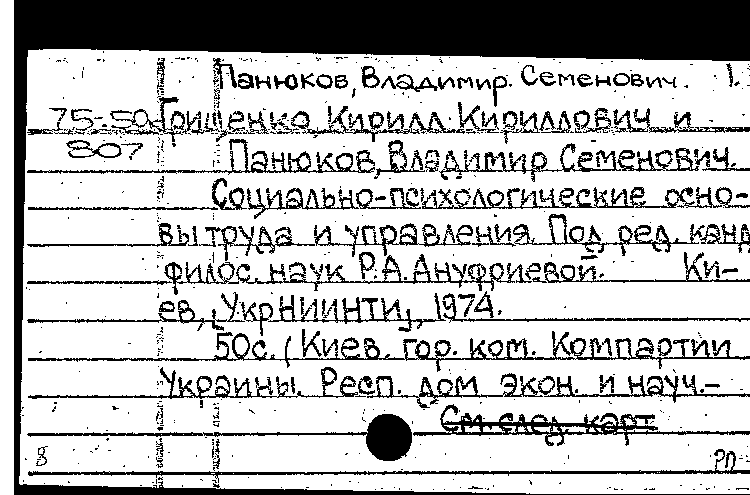 Панюков, Владимир Семенович. 1.
75-50807 Грищенко, Кирилл Кириллович и
Панюков, Владимир Семенович.
Социально-психологические осно-
вы труда и управления. Под ред. канд
филос. наук Р.А. Ануфриевой. Ки-
ев, [УкрНИИНТИ], 1974.
50с. (Киев. гор. ком. Компартии
Украины. Респ. дом экон. и науч.-
См. след. карт
8 РП-